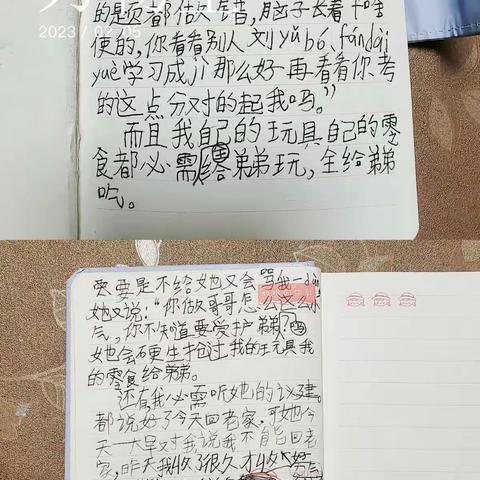 2023/02/05
的是页都估人错，脑子长着干啥
使的，你看看别人刘yǔ bó、fán dài
yuè学习成jì那么好再看看你考
的这点分对的起我吗。”
而且我自己的玩具自己的零
食都必需给弟弟玩，全给弟弟
吃。
要是不给她又会骂我一
她又说：“你做哥哥怎么这么小
气，你不知道要爱护弟弟？
她也会硬生抢过我的玩具我
的零食给弟弟。
还有我必需听她的议建。
都说好了今天回老家，可她今
天一大早又对我说我不能回老
家，昨天我收了很久才收好